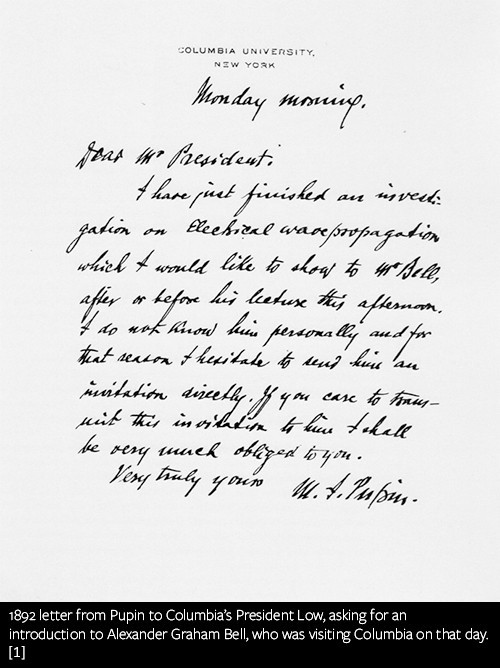 COLUMBIA UNIVERSITY,
NEW YORK
Monday morning.
Dear Mr President:
I have just finished an investi-
gation on Electrical wave propagation
which I would like to show to Mr Bell,
after or before his lecture this afternoon.
I do not know him personally and for
that reason I hesitate to send him an
invitation directly. If you care to trans-
mit this invitation to him I shall
be very much obliged to you.
Very truly yours
M. I. Pupin.
1892 letter from Pupin to Columbia's President Low, asking for an
introduction to Alexander Graham Bell, who was visiting Columbia on that day.
[1]